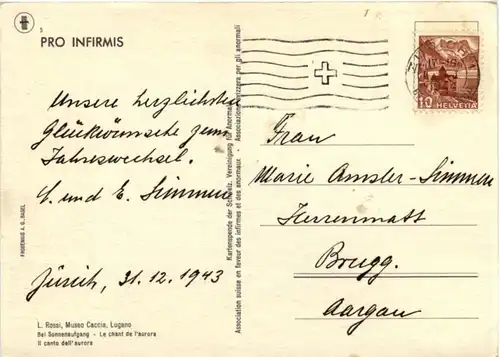 PRO INFIRMIS
Unsere herzlichsten
Glückwünsche zum
Jahreswechsel.
E. und E. Simmen
Zürich, 31.12.1943
L. Rossi, Museo Caccia, Lugano
Bei Sonnenaufgang - Le chant de l'aurore
Il canto dell'aurora
FROBENIUS A. G., BASEL
Kartenspende der Schweiz. Vereinigung für Anormale
Association suisse en faveur des infirmes et des anormaux - Associazione svizzera per gli anormali
10 HELVETIA
Frau
Marie Amsler-Simmen
Herrenmatt
Brugg.
Aargau